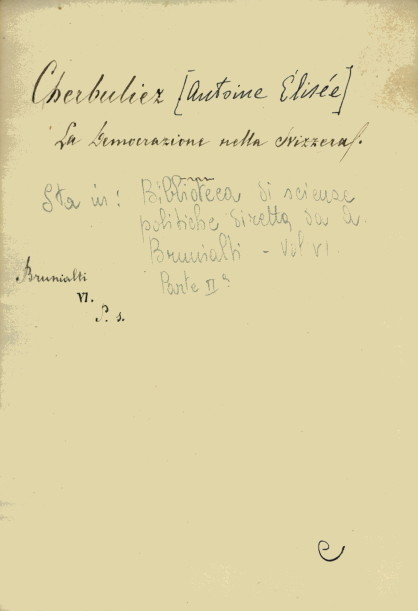 Cherbuliez [Antoine Élisée]
La Democrazione nella Svizzera.
Sta in: Biblioteca di scienze
politiche diretta da A.
Brunialti - Vol VI.
Parte IIa
Brunialti
VI.
P. s.
e